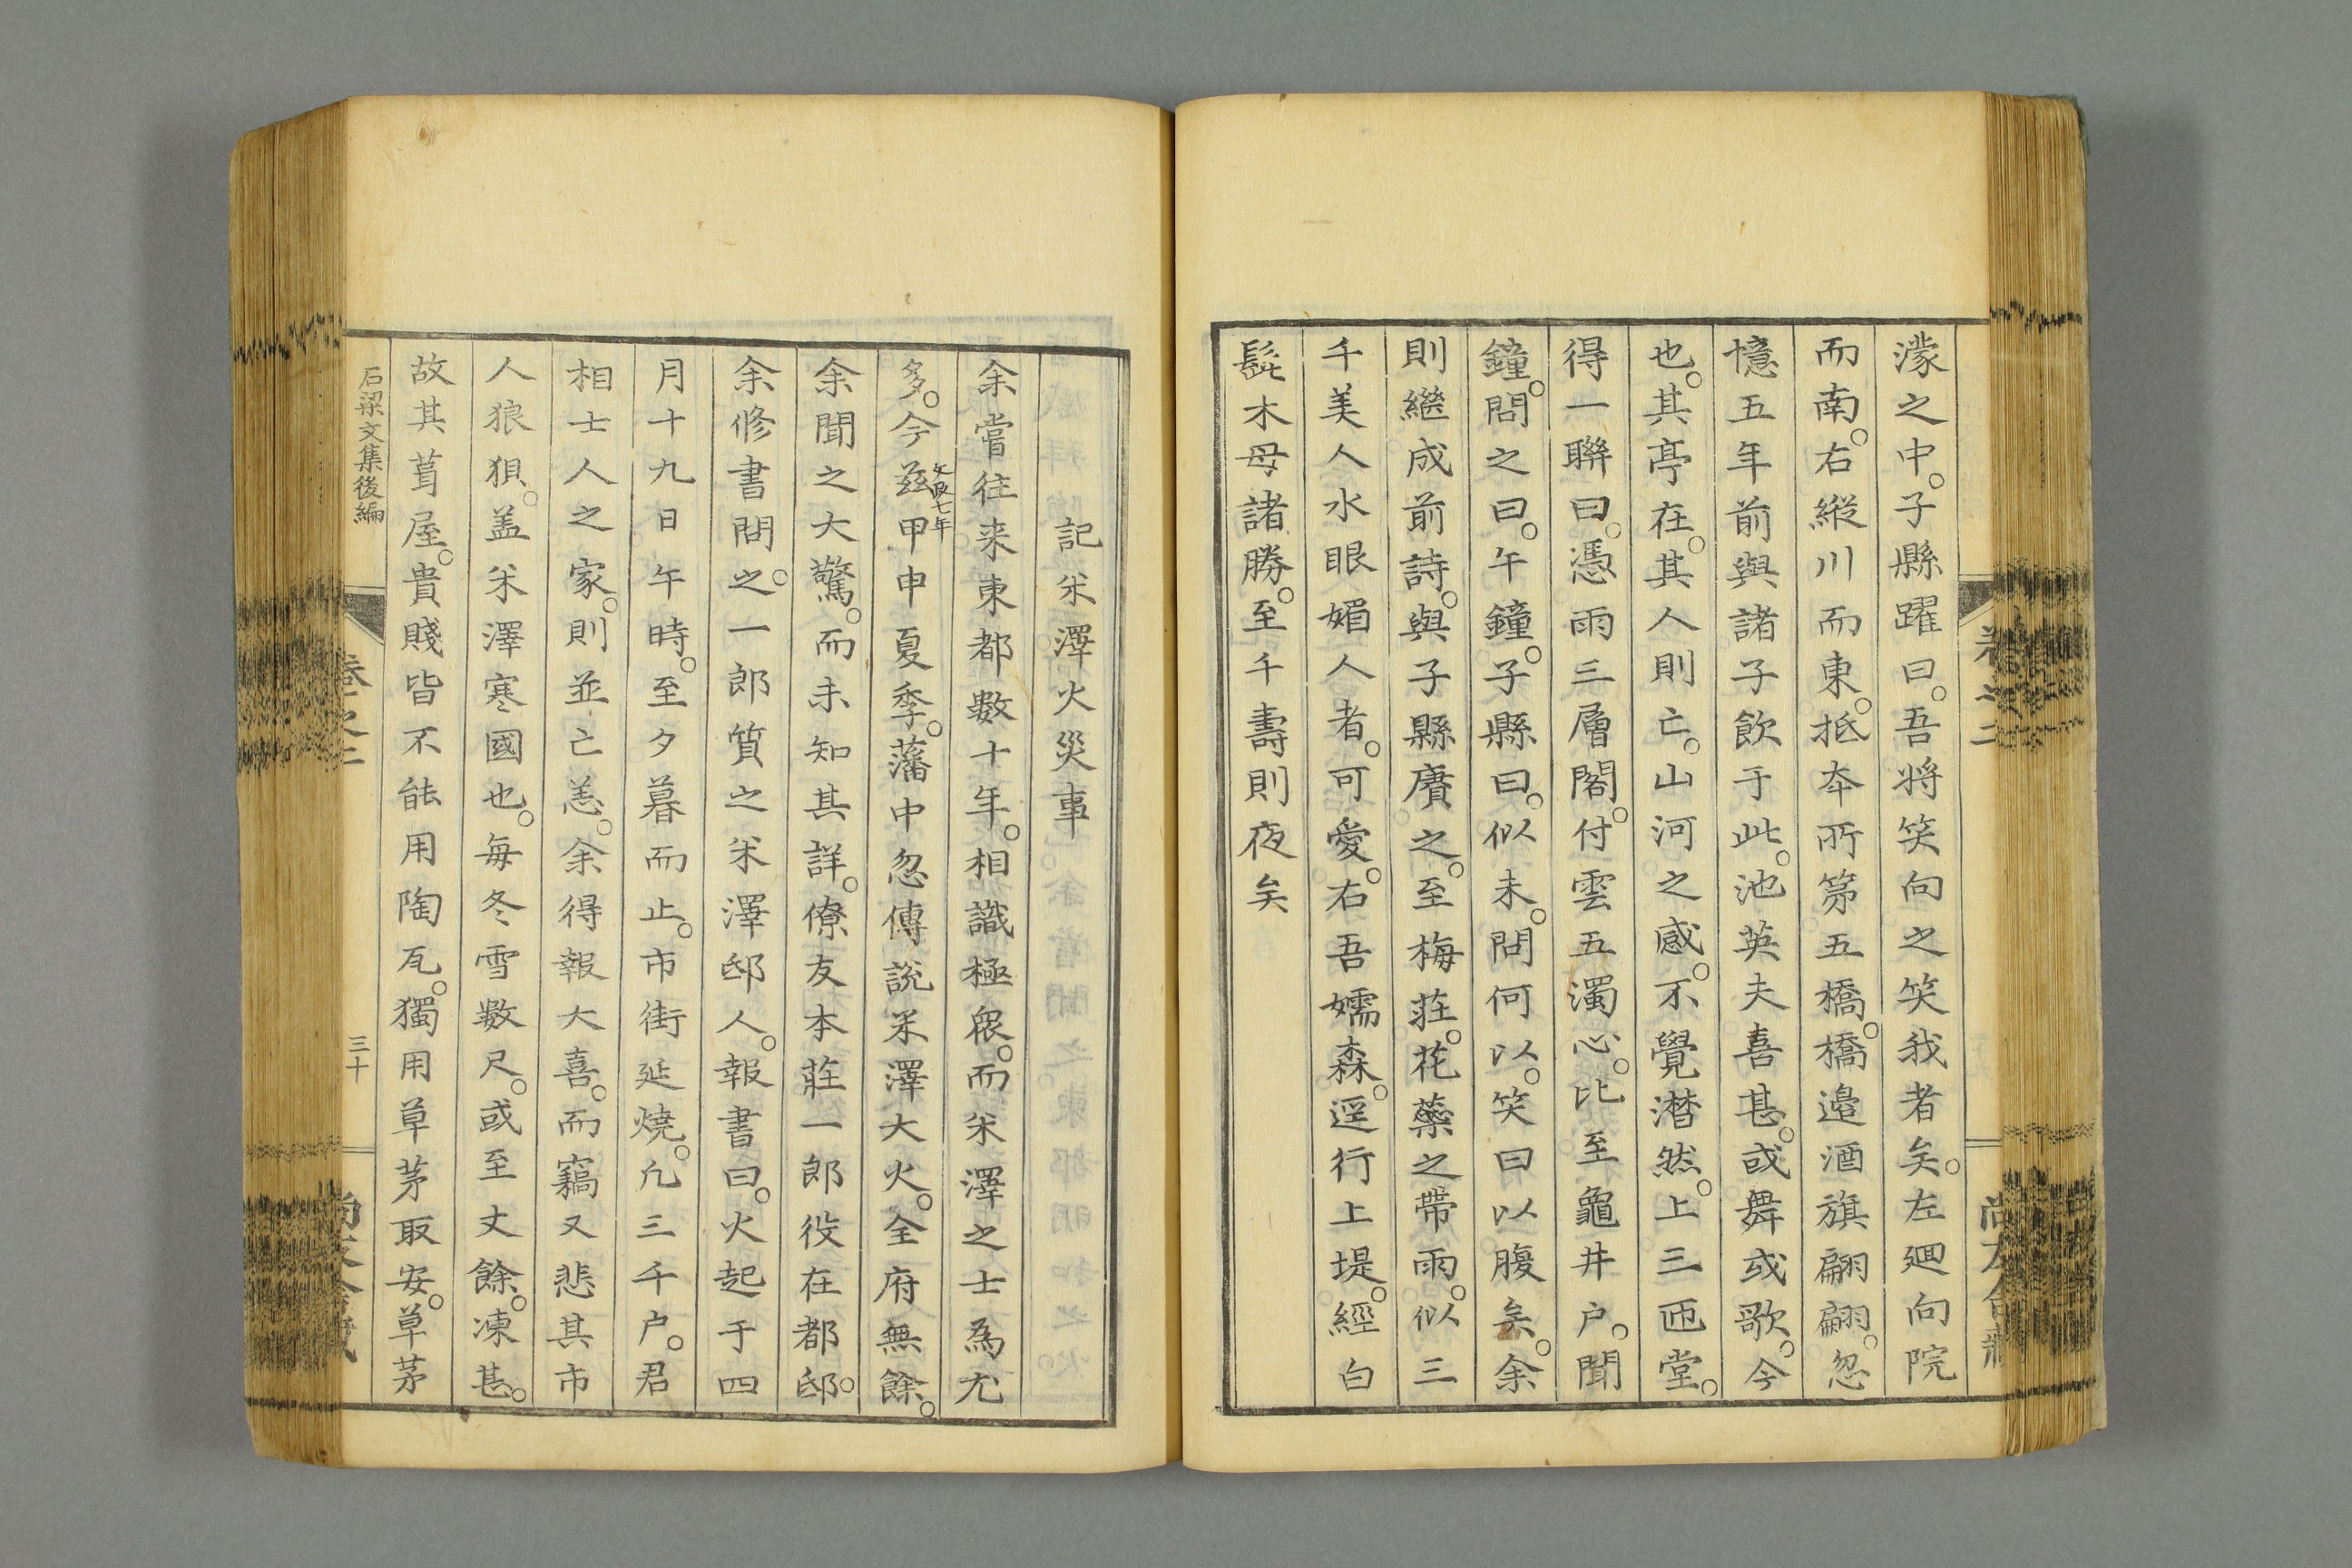 濛之中。子縣躍曰。吾将笑向之笑我者矣。左廻向院
而南。右縱川而東。抵夲所第五橋。橋邉酒旗翩翩。忽
憶五年前與諸子飲于此。池英夫喜甚。或舞或歌。今
也。其亭在。其人則亡。山河之感。不覺潸然。上三匝堂。
得一聯曰。憑雨三層閣。付雲五濁心。比至龜井户。聞
鐘。問之曰。午鐘。子縣曰。似未。問何以。笑曰以腹矣。余
則繼成前詩。與子縣賡之。至梅莊。花藥之帶雨。似三
千美人水眼媚人者。可愛。右吾嬬森。逕行上堤。經白
髭木母諸勝。至千壽則夜矣
記米澤火災事
余嘗往来東都數十年。相識極衆。而米澤之士為尤
多。今兹文政七年甲申夏季。藩中忽傳說米澤大火。全府無餘。
余聞之大驚。而未知其詳。僚友本莊一郎役在都邸。
余修書問之。一郎質之米澤邸人。報書曰。火起于四
月十九日午時。至夕暮而止。市街延燒。凢三千户。君
相士人之家。則並亡恙。余得報大喜。而竊又悲其市
人狼狽。盖米澤寒國也。每冬雪數尺。或至丈餘。凍甚。
故其葺屋。貴賤皆不能用陶瓦。獨用草茅取安。草茅
石梁文集後編
卷之二
三十